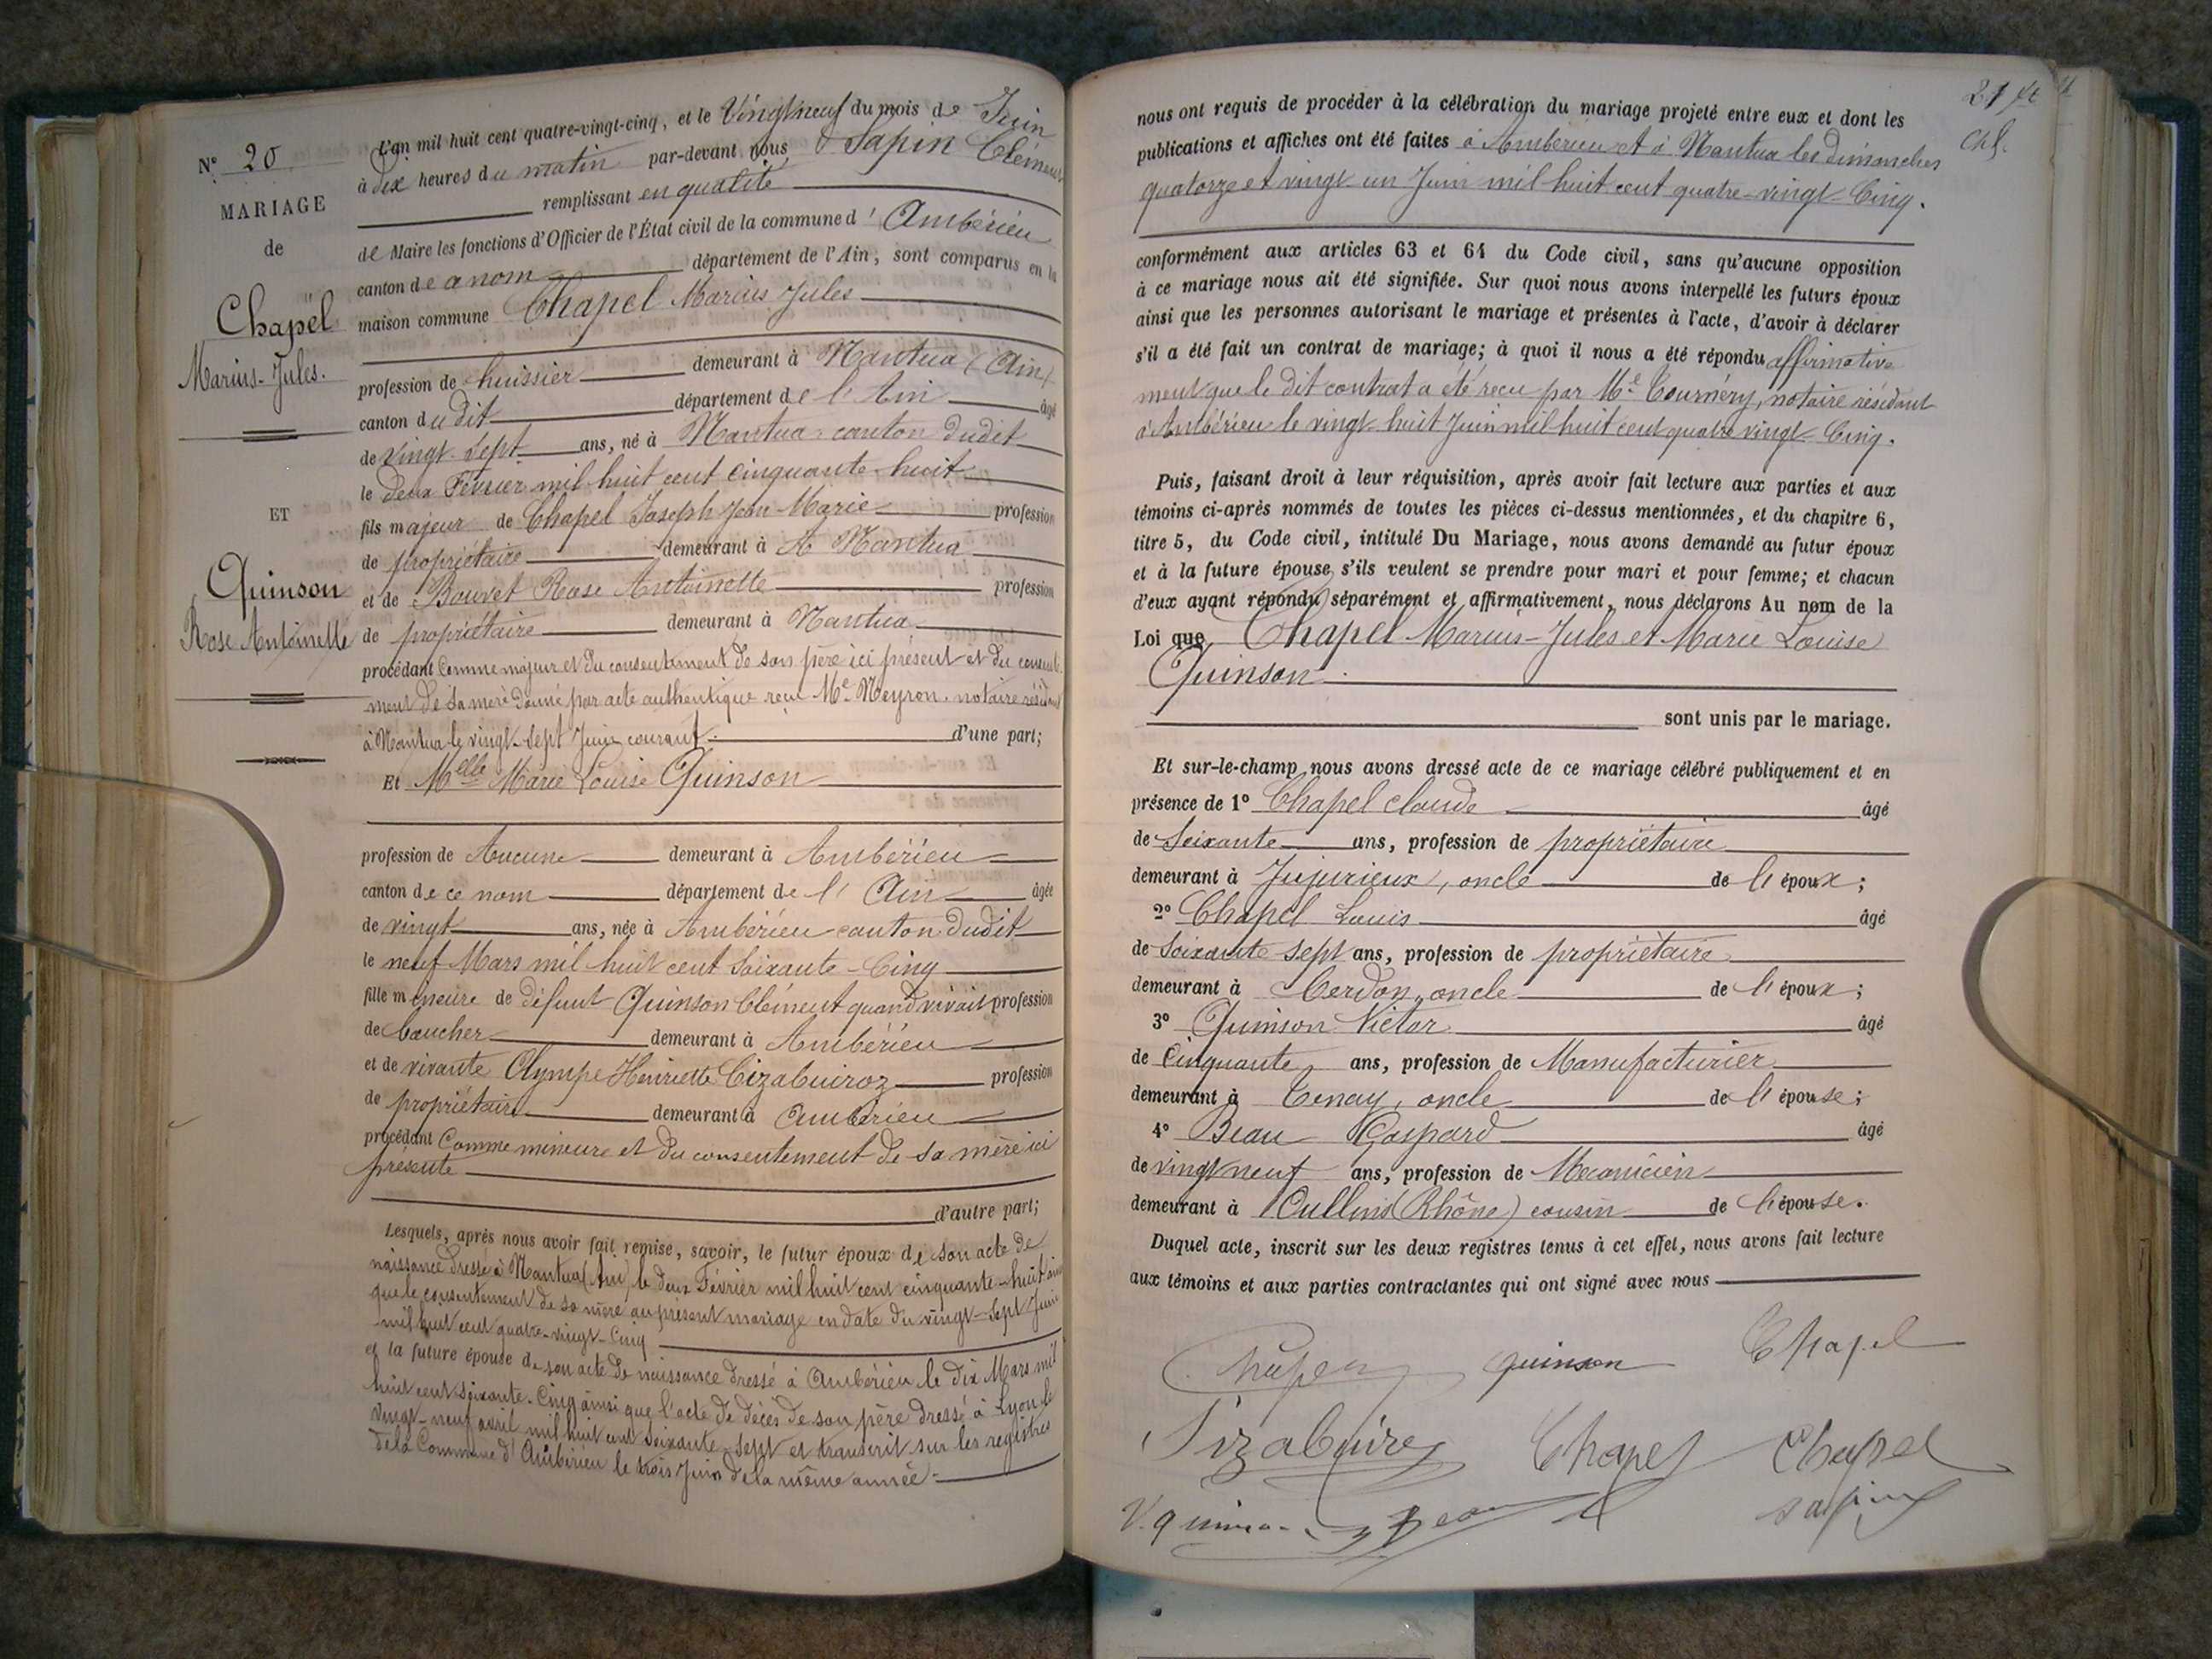 N° 20
MARIAGE
de
Chapel
Marius-Jules.
ET
Quinson
Rose Antoinette
L'an mil huit cent quatre-vingt-cinq, et le Vingt neuf du mois de Juin
à Dix heures du matin par-devant nous Sapin Clément
remplissant en qualité
de Maire les fonctions d'Officier de l'État civil de la commune d' Ambérieu
canton de a nom département de l'Ain, sont comparus en la
maison commune Chapel Marius Jules
profession de huissier demeurant à Nantua (Ain)
canton du dit département de l'Ain âgé
de vingt-sept ans, né à Nantua canton dudit
le deux Février mil huit cent cinquante-huit
fils majeur de Chapel Joseph Jean Marie profession
de propriétaire demeurant à A Nantua
et de Bouvet Rose Antoinette profession
de propriétaire demeurant à Nantua
procédant Comme majeur et du consentement de son père ici présent et du consente
ment de sa mère donné par acte authentique reçu Me Neyron notaire résidant
à Nantua le vingt-sept Juin courant. d'une part;
Et Melle Marie Louise Quinson
profession de Aucune demeurant à Ambérieu
canton de ce nom département de l'Ain âgée
de vingt ans, née à Ambérieu canton dudit
le neuf Mars mil huit cent soixante-Cinq
fille mineure de défunt Quinson Clément quand vivait profession
de boucher demeurant à Ambérieu
et de vivante Olympe Henriette Cizabuiroz profession
de propriétaire demeurant à Ambérieu
procédant Comme mineure et du consentement de sa mère ici
présente
d'autre part;
Lesquels, après nous avoir fait remise, savoir, le futur époux de son acte de
naissance dressé à Nantua (Ain) le deux Février mil huit cent cinquante-huit ainsi
que le consentement de sa mère au présent mariage en date du vingt-sept Juin
mil huit cent quatre-vingt-Cinq
et la future épouse de son acte de naissance dressé à Ambérieu le dix Mars mil
huit cent soixante-Cinq ainsi que l'acte de décès de son père dressé à Lyon le
vingt-neuf avril mil huit cent soixante-sept et transcrit sur les registres
de la Commune d'Ambérieu le trois Juin de la même année.
21
nous ont requis de procéder à la célébration du mariage projeté entre eux et dont les
publications et affiches ont été faites à Ambérieu et à Nantua les dimanches
quatorze et vingt-un Juin mil huit cent quatre-vingt-Cinq.
conformément aux articles 63 et 64 du Code civil, sans qu'aucune opposition
à ce mariage nous ait été signifiée. Sur quoi nous avons interpellé les futurs époux
ainsi que les personnes autorisant le mariage et présentes à l'acte, d'avoir à déclarer
s'il a été fait un contrat de mariage; à quoi il nous a été répondu affirmative
ment que le dit contrat a été reçu par Me Tournéry, notaire résidant
à Ambérieu le vingt-huit Juin mil huit cent quatre vingt-Cinq.
Puis, faisant droit à leur réquisition, après avoir fait lecture aux parties et aux
témoins ci-après nommés de toutes les pièces ci-dessus mentionnées, et du chapitre 6,
titre 5, du Code civil, intitulé Du Mariage, nous avons demandé au futur époux
et à la future épouse s'ils veulent se prendre pour mari et pour femme; et chacun
d'eux ayant répondu séparément et affirmativement, nous déclarons Au nom de la
Loi que Chapel Marius-Jules et Marie Louise
Quinson.
sont unis par le mariage.
Et sur-le-champ nous avons dressé acte de ce mariage célébré publiquement et en
présence de 1° Chapel claude âgé
de soixante ans, profession de propriétaire
demeurant à Jujurieux, oncle de l'époux;
2° Chapel Louis âgé
de soixante sept ans, profession de propriétaire
demeurant à Cerdon, oncle de l'époux;
3° Quinson Victor âgé
de Cinquante ans, profession de Manufacturier
demeurant à Tenay, oncle de l'épouse;
4° Beau Gaspard âgé
de vingt neuf ans, profession de Mecanicien
demeurant à Oullins (Rhône) cousin de l'épouse.
Duquel acte, inscrit sur les deux registres tenus à cet effet, nous avons fait lecture
aux témoins et aux parties contractantes qui ont signé avec nous
Chapel quinson Chapel
Chapel Chapel
V. quinson Beau Sapin